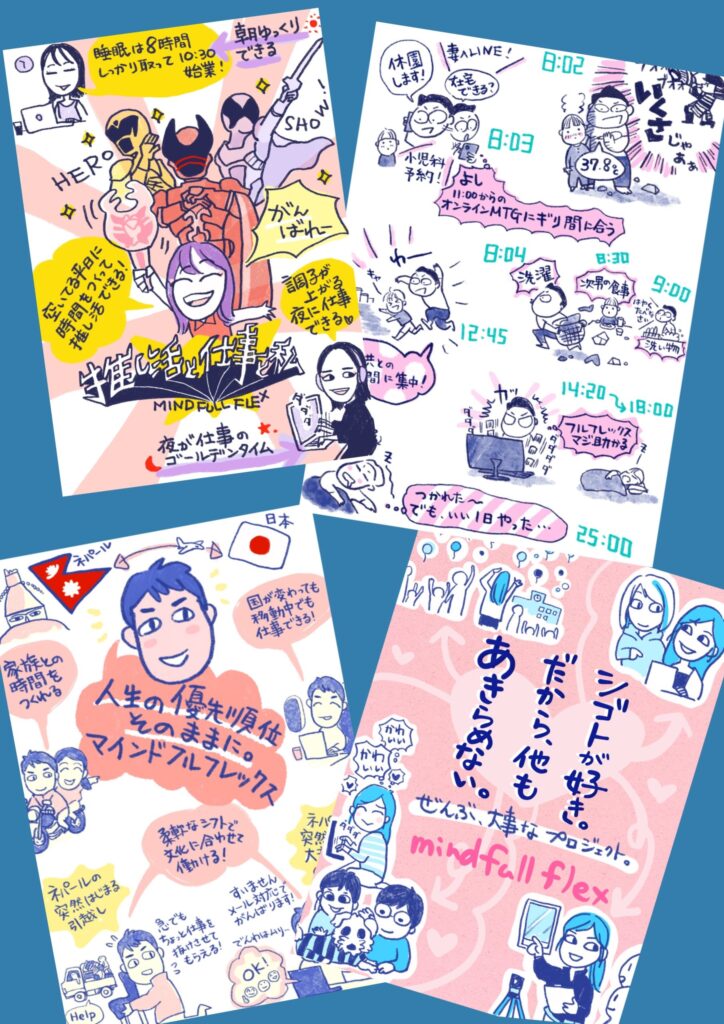 睡眠は8時間
しっかり取って10:30
始業!
朝ゆっくり
できる
HERO
SHOW!
がん
ばれー
空いてる平日に
時間をつくって
推し活できる!
調子が
上がる
夜に仕事
できる
推し活と仕事と私
MINDFULL FLEX
ダダダ
夜が仕事の
ゴールデンタイム
休園
します!
妻へLINE!
在宅
できる?
小児科
予約!
8:02
8:03
いくさじゃ
あぁ
37.8℃
よし
11:00からの
オンラインMTGにギリ間に合う
わー
8:04
洗濯
8:30
次男の食事
9:00
洗い物
12:45
間に集中!
14:20→18:00
ダダダ
フルフレックス
マジ助かる
つかれた〜
でも、いい1日やった…
25:00
ネパール
日本
国が変わっても
移動中でも
仕事できる!
家族との
時間を
つくれる
人生の優先順位
そのままに。
マインドフルフレックス
柔軟なシフトで
文化に合わせて
働かける!
ネパールの
突然はじまる
引越し
Help
急でも
ちょっと仕事を
抜けさせて
もらえる!
すいません
メール対応で
がんばります!
でんわはムリー
OK!
シゴトが好き。
だから、他も
あきらめない。
ぜんぶ、大事なプロジェクト。
mindfull flex
かわいい
かわいい